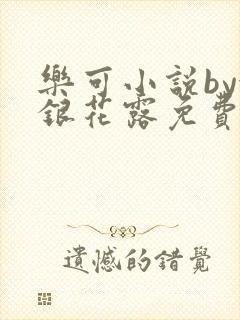 樂可小說by
銀花露免費
遺憾的錯覺